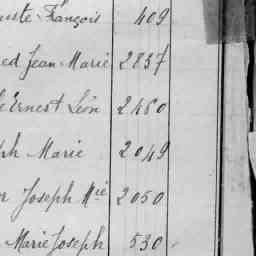 uste François 409
ed Jean Marie 2837
Ernest Léon 2480
ph Marie 2049
Joseph Mie 2050
Marie Joseph 530